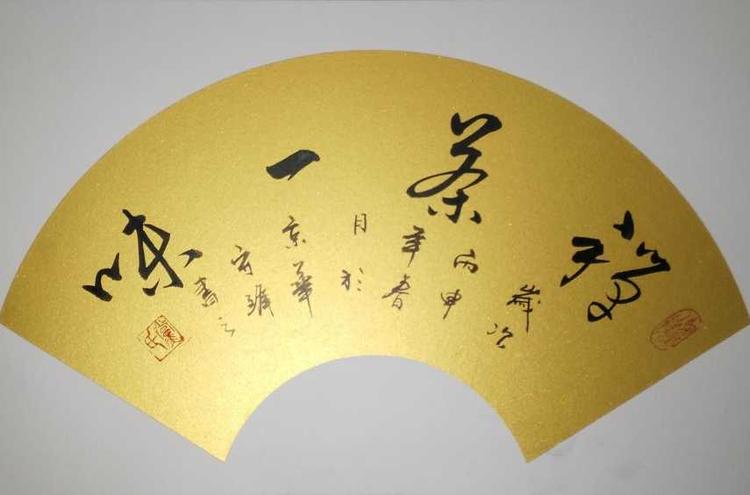 禪茶一味
歲次
丙申
年春
月於
京華
守
書之